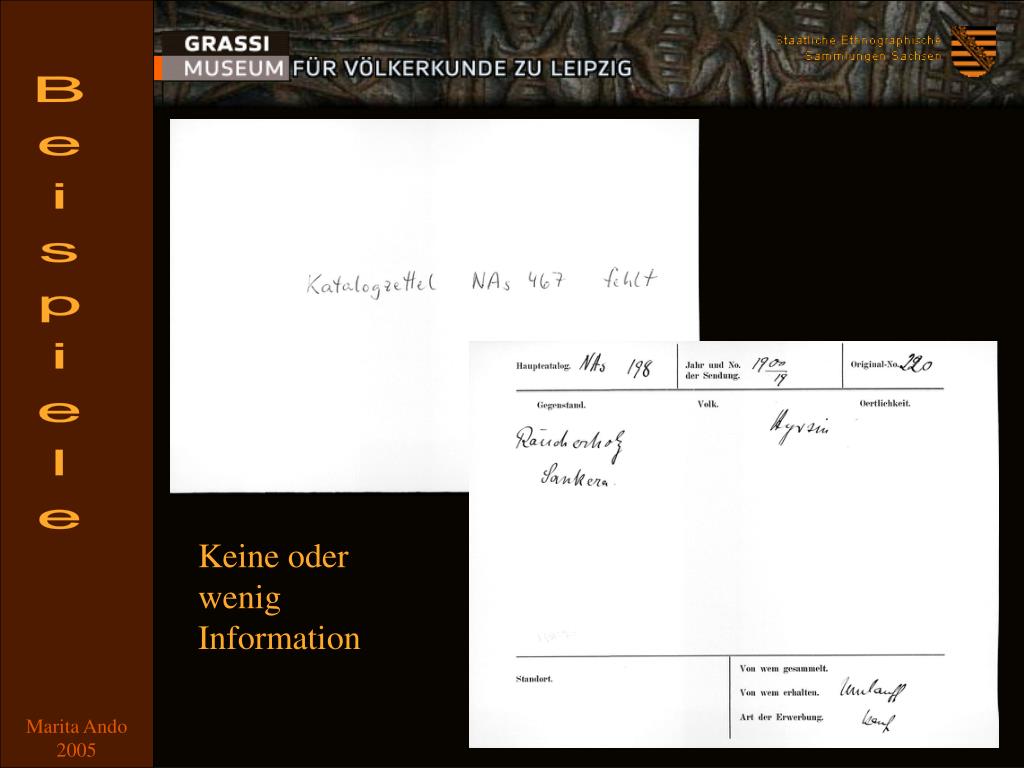 GRASSI
MUSEUM FÜR VÖLKERKUNDE ZU LEIPZIG
Staatliche Ethnographische
Sammlungen Sachsen
Beispiele
Katalogzettel NAs 467 fehlt
Hauptcatalog. NAs 198
Jahr und No. der Sendung. 1900/19
Original-No. 220
Gegenstand.
Volk.
Oertlichkeit.
Räucherholz
Sankera.
Standort.
Von wem gesammelt.
Von wem erhalten. Umlauff
Art der Erwerbung. Kauf
Keine oder
wenig
Information
Marita Ando
2005